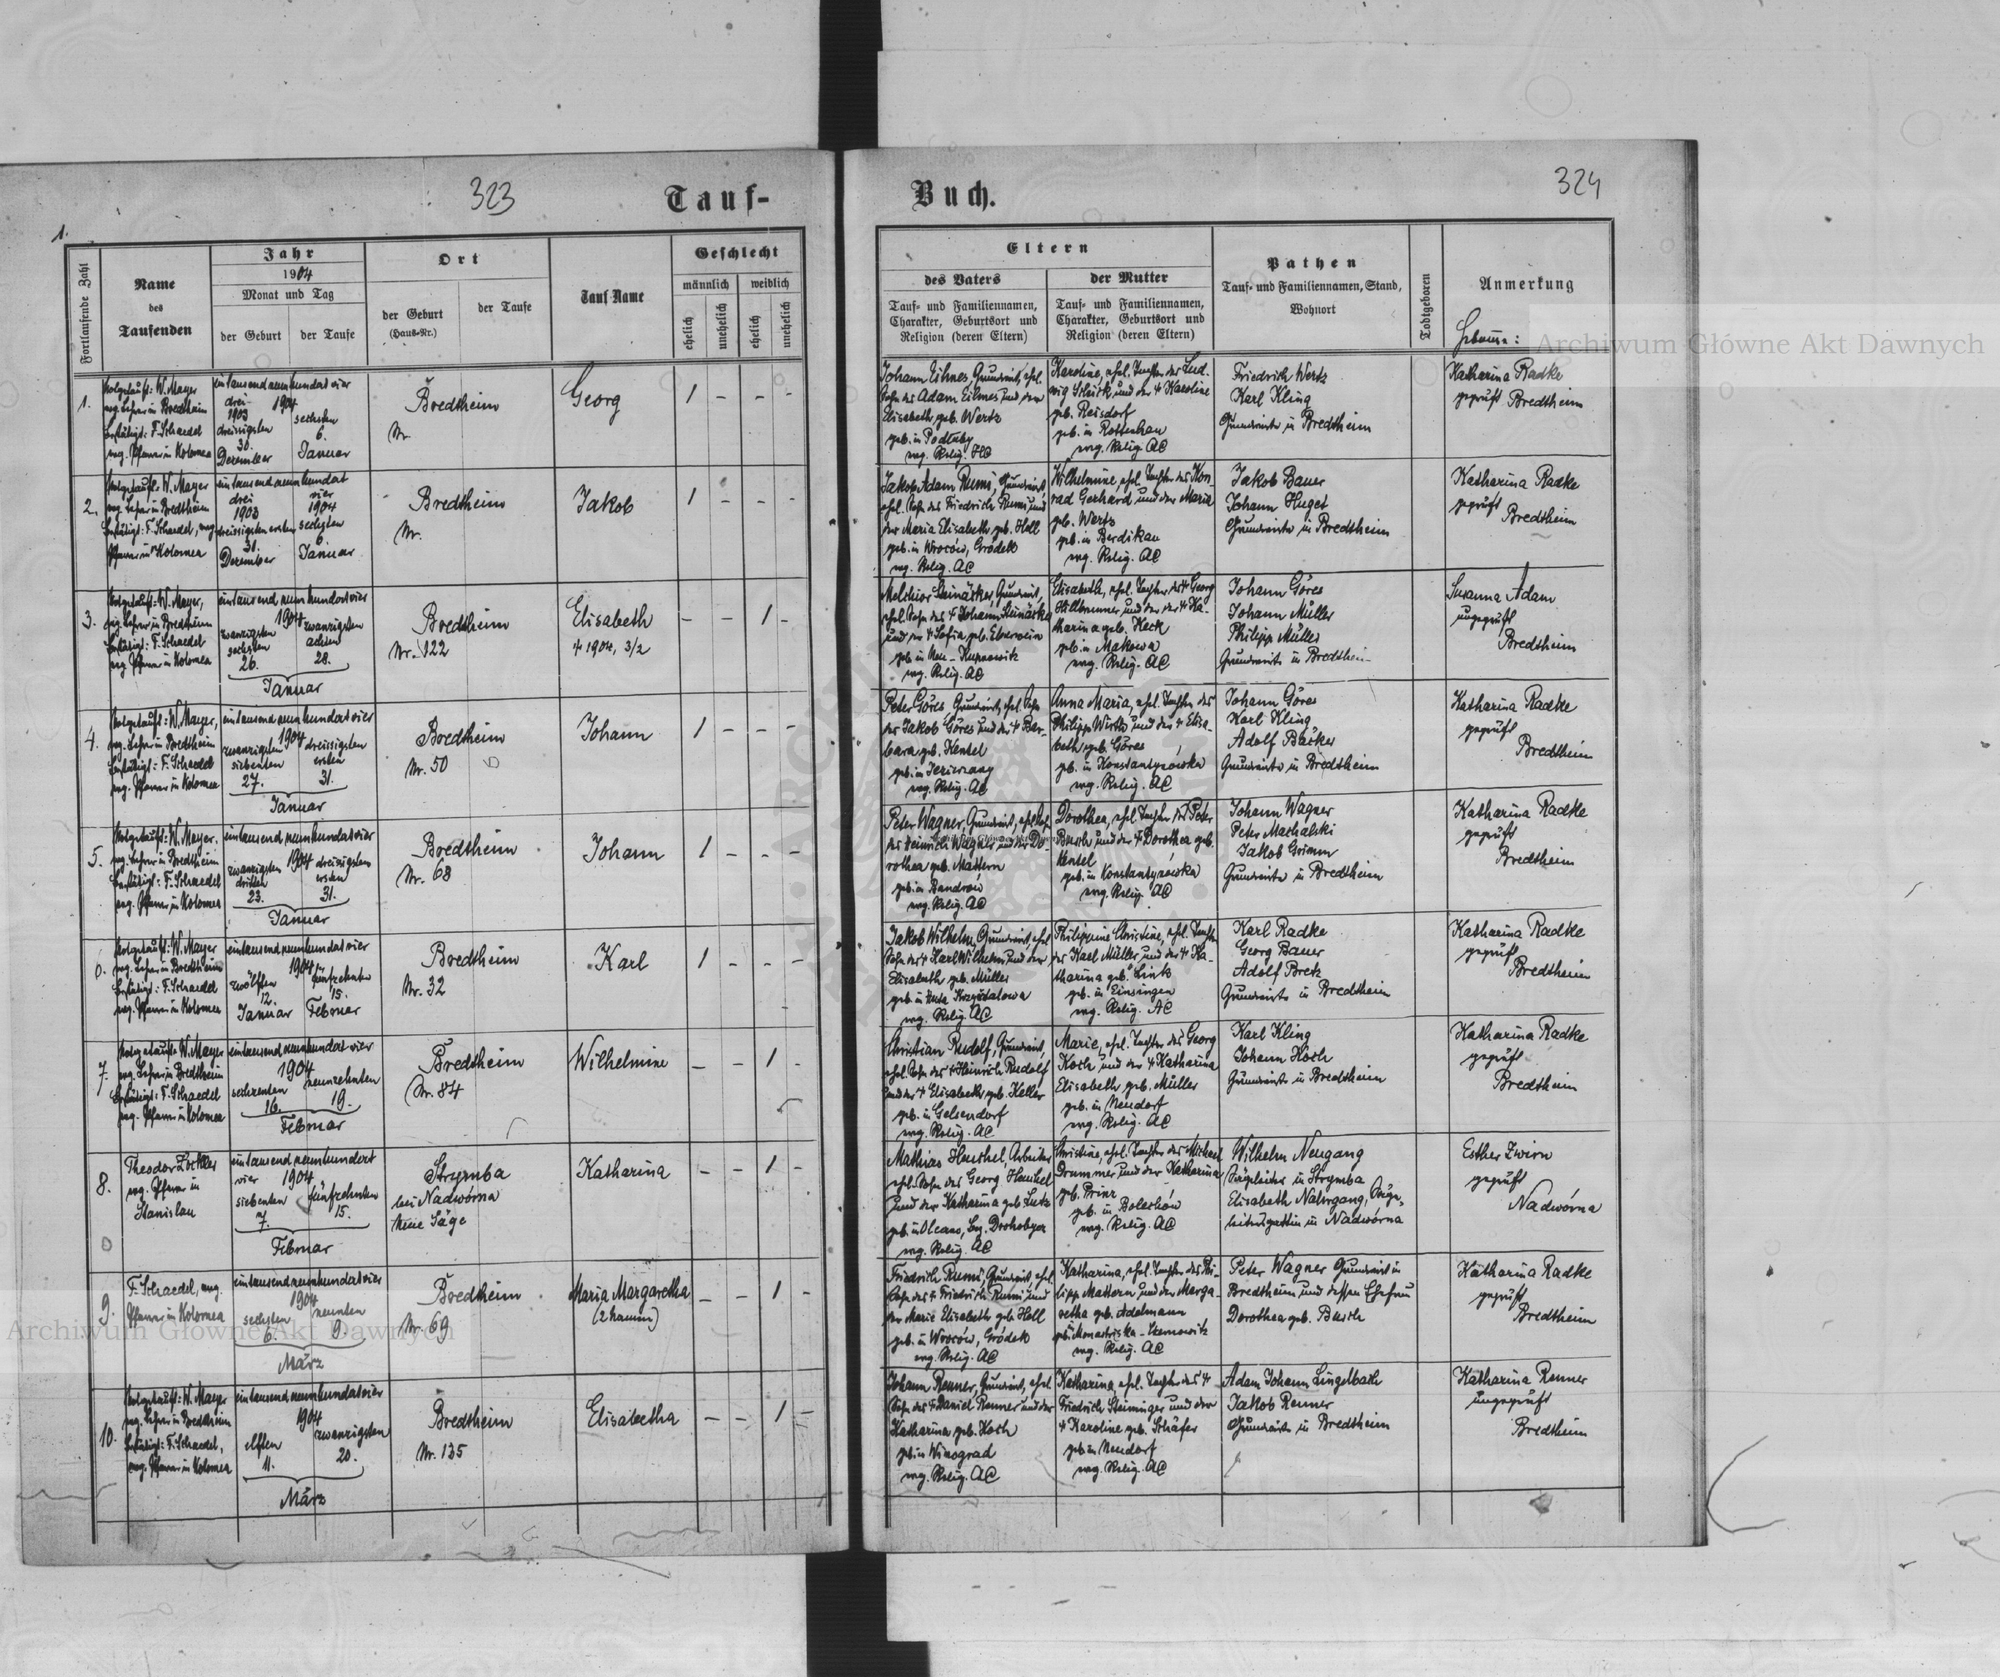 323
Tauf-
1.
Fortlaufende Zahl
Name
des
Taufenden
Jahr
1904
Monat und Tag
der Geburt
der Taufe
Ort
der Geburt
(Haus-Nr.)
der Taufe
Tauf-Name
Geschlecht
männlich
weiblich
ehelich
unehelich
ehelich
unehelich
1.
Notgetauft: W. Mayer
evg. Lehrer in Bredtheim
Bestätigt: F. Schaedel
evg. Pfarrer in Kolomea
eintausendneunhundertvier
drei- 1904
1903
dreissigsten
30.
Dezember
sechsten
6.
Januar
Bredtheim
Nr.
Georg
1 - - -
2.
Notgetauft: W. Mayer
evg. Lehrer in Bredtheim
Bestätigt: F. Schaedel, evg.
Pfarrer in Kolomea
eintausendneunhundert
drei vier
1903 1904
dreissigsten ersten sechsten
31. 6.
Dezember Januar
Bredtheim
Nr.
Jakob
1 - - -
3.
Notgetauft: W. Mayer,
evg. Lehrer in Bredtheim
Bestätigt: F. Schaedel
evg. Pfarrer in Kolomea
eintausendneunhundertvier
1904
zwanzigsten zwanzigsten
sechsten achten
26. 28.
Januar
Bredtheim
Nr. 122
Elisabeth
† 1904, 3/2
- - 1 -
4.
Notgetauft: W. Mayer,
evg. Lehrer in Bredtheim
Bestätigt: F. Schaedel
evg. Pfarrer in Kolomea
eintausendneunhundertvier
1904
zwanzigsten dreissigsten
siebenten ersten
27. 31.
Januar
Bredtheim
Nr. 50
Johann
1 - - -
5.
Notgetauft: W. Mayer.
evg. Lehrer in Bredtheim
Bestätigt: F. Schaedel
evg. Pfarrer in Kolomea
eintausendneunhundertvier
1904
zwanzigsten dreissigsten
dritten ersten
23. 31.
Januar
Bredtheim
Nr. 68
Johann
1 - - -
6.
Notgetauft: W. Mayer
evg. Lehrer in Bredtheim
Bestätigt: F. Schaedel
evg. Pfarrer in Kolomea
eintausendneunhundertvier
1904
zwölften fünfzehnten
12. 15.
Januar Februar
Bredtheim
Nr. 32
Karl
1 - - -
7.
Notgetauft: W. Mayer
evg. Lehrer in Bredtheim
Bestätigt: F. Schaedel
evg. Pfarrer in Kolomea
eintausendneunhundertvier
1904
sechzenten neunzehnten
16. 19.
Februar
Bredtheim
Nr. 84
Wilhelmine
- - 1 -
8.
Theodor Zöckler
evg. Pfarrer in
Stanislau
eintausendneunhundert
vier 1904
siebenten fünfzehnten
7. 15.
Februar
Strymba
bei Nadwórna
Neue Säge
Katharina
- - 1 -
9.
F. Schaedel, evg.
Pfarrer in Kolomea
eintausendneunhundertvier
1904
sechsten neunten
6. 9.
März
Bredtheim
Nr. 69
Maria Margaretha
(2 Namen)
- - 1 -
10.
Notgetauft: W. Mayer
evg. Lehrer in Bredtheim
Bestätigt: F. Schaedel,
evg. Pfarrer in Kolomea
eintausendneunhundertvier
1904
elften zwanzigsten
11. 20.
März
Bredtheim
Nr. 135
Elisabetha
- - 1 -
Buch.
324
Eltern
des Vaters
Tauf- und Familiennamen,
Charakter, Geburtsort und
Religion (deren Eltern)
der Mutter
Tauf- und Familiennamen,
Charakter, Geburtsort und
Religion (deren Eltern)
Pathen
Tauf- und Familiennamen, Stand,
Wohnort
Todtgeboren
Anmerkung
Hebamme:
Johann Eilmes, Grundwirt, ehel.
Sohn des Adam Eilmes und der
Elisabeth geb. Wertz
geb. in Podłuby
evg. Relig. HC
Karoline, ehel. Tochter des Lud-
wig Schürk und der † Karoline
geb. Reisdorf
geb. in Rottenhan
evg. Relig. AC
Friedrich Wertz
Karl Kling
Grundwirte in Bredtheim
Katharina Radke
geprüft Bredtheim
Jakob Adam Rumi, Grundwirt,
ehel. Sohn des Friedrich Rumi und
der Maria Elisabeth geb. Holl
geb. in Wroców, Gródek
evg. Relig. AC
Wilhelmine, ehel. Tochter des Kon-
rad Gerhard und der Maria
geb. Wertz
geb. in Berdikau
evg. Relig. AC
Jakob Bauer
Johann Huget
Grundwirte in Bredtheim
Katharina Radke
geprüft
Bredtheim
Melchior Steinäcker, Grundwirt,
ehel. Sohn des † Johann Steinäcker
und der † Sofia geb. Eberwein
geb. in Neu-Kupnowitz
evg. Relig. AC
Elisabeth, ehel. Tochter des † Georg
Hillbrunner und der † Ka-
tharina geb. Heck
geb. in Makowa
evg. Relig. AC
Johann Göres
Johann Müller
Philipp Müller
Grundwirte in Bredtheim
Susanna Adam
ungeprüft
Bredtheim
Peter Göres Grundwirt, ehel. Sohn
des Jakob Göres und der † Bar-
bara geb. Hensel
geb. in Jerierzany
evg. Relig. AC
Anna Maria, ehel. Tochter des
Philipp Wirth und der † Elisa-
beth geb. Göres
geb. in Konstantynówka
evg. Relig. AC
Johann Göres
Karl Kling
Adolf Bäcker
Grundwirte in Bredtheim
Katharina Radke
geprüft
Bredtheim
Peter Wagner, Grundwirt, ehel. Sohn
des Heinrich Wagner und der Do-
rothea geb. Mattern
geb. in Bandrów
evg. Relig. AC
Dorothea, ehel. Tochter des † Peter
Busch und der † Dorothea geb.
Hensel
geb. in Konstantynówka
evg. Relig. AC
Johann Wagner
Peter Machalski
Jakob Grimm
Grundwirte in Bredtheim
Katharina Radke
geprüft
Bredtheim
Jakob Wilhelm, Grundwirt, ehel.
Sohn des † Karl Wilhelm und der
Elisabeth geb. Müller
geb. in Huta Krzyształowa
evg. Relig. AC
Philippine Christine, ehel. Tochter
des Karl Müller und der † Ka-
tharina geb. Link
geb. in Einsingen
evg. Relig. AC
Karl Radke
Georg Bauer
Adolf Bretz
Grundwirte in Bredtheim
Katharina Radke
geprüft
Bredtheim
Christian Rudolf, Grundwirt,
ehel. Sohn des † Heinrich Rudolf
und der † Elisabeth geb. Keller
geb. in Gelsendorf
evg. Relig. AC
Marie, ehel. Tochter des Georg
Koch und der † Katharina
Elisabeth geb. Müller
geb. in Neudorf
evg. Relig. AC
Karl Kling
Johann Koch
Grundwirte in Bredtheim
Katharina Radke
geprüft
Bredtheim
Mathias Henschel, Arbeiter
ehel. Sohn des Georg Henschel
und der Katharina geb. Lutz
Drohobycz
evg. Relig. AC
Christine, ehel. Tochter des Michael
Drummer und der Katharina
geb. Prinz
geb. in Bolechów
evg. Relig. AC
Wilhelm Neugang
Sägeleiter in Strymba
Elisabeth Nahrgang, Säge-
leitersgattin in Nadwórna
Esther Zwirn
geprüft
Nadwórna
Friedrich Rumi, Grundwirt, ehel.
Sohn des † Friedrich Rumi und
der Marie Elisabeth geb. Holl
geb. in Wroców, Gródek
evg. Relig. AC
Katharina, ehel. Tochter des Phi-
lipp Mattern und der Marga-
retha geb. Adelmann
geb. Monastriska - Czernowitz
evg. Relig. AC
Peter Wagner Grundwirt in
Bredtheim und dessen Ehefrau
Dorothea geb. Busch
Katharina Radke
geprüft
Bredtheim
Johann Renner, Grundwirt, ehel.
Sohn des † Daniel Renner und der
Katharina geb. Koch
geb. in Winograd
evg. Relig. AC
Katharina, ehel. Tochter des †
Friedrich Steininger und der
† Karoline geb. Schäfer
geb. in Neudorf
evg. Relig. AC
Adam Johann Lingelbach
Jakob Renner
Grundwirte in Bredtheim
Katharina Renner
ungeprüft
Bredtheim
Archiwum Główne Akt Dawnych
Archiwum Główne Akt Dawnych